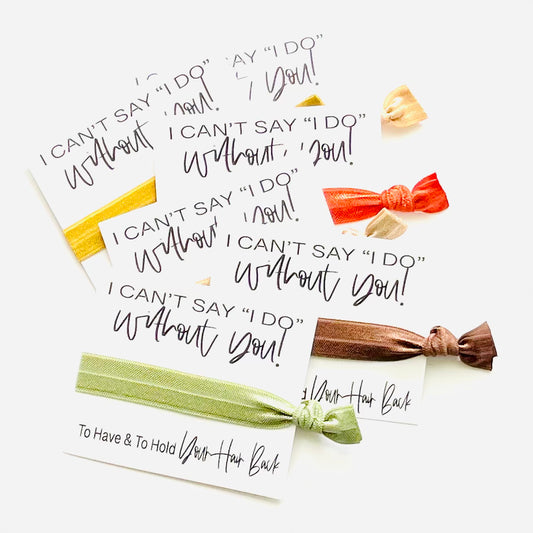 AY "I DO"
You!
I CAN'T SAY "I DO"
Without You!
I CAN'T SAY "I DO"
Without You!
I CAN'T SAY "I DO"
Without You!
I CAN'T SAY "I DO"
Without You!
I CAN'T SAY "I DO"
Without You!
Your Hair Back
To Have & To Hold Your Hair Back